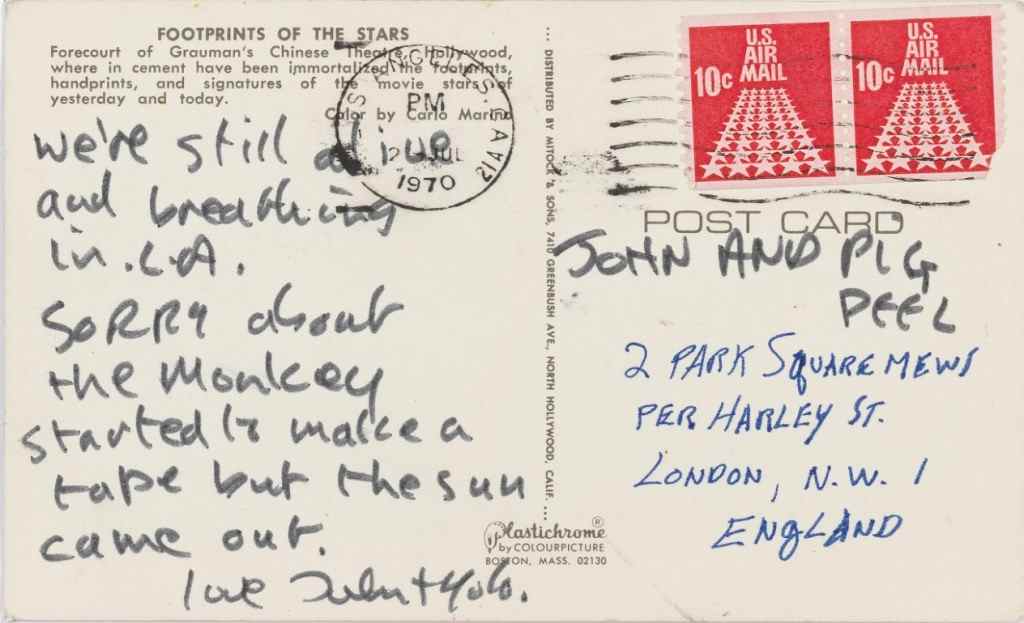 FOOTPRINTS OF THE STARS
Forecourt of Grauman's Chinese Theatre, Hollywood,
where in cement have been immortalized the footprints,
handprints, and signatures of the movie stars of
yesterday and today.
Color by Carlo Marino
we're still alive
and breathing
in L.A.
SORRY about
the Monkey
started to make a
tape but the sun
came out.
love John + Yoko.
... DISTRIBUTED BY MITOCK & SONS, 7410 GREENBUSH AVE., NORTH HOLLYWOOD, CALIF. ...
Plastichrome®
by COLOURPICTURE
BOSTON, MASS. 02130
LOS ANGELES, CA
PM
JUL
1970
U.S.
AIR
MAIL
10c
U.S.
AIR
MAIL
10c
POST CARD
JOHN AND PIG
PEEL
2 PARK SQUARE MEWS
PER HARLEY ST.
LONDON, N.W. 1
ENGLAND